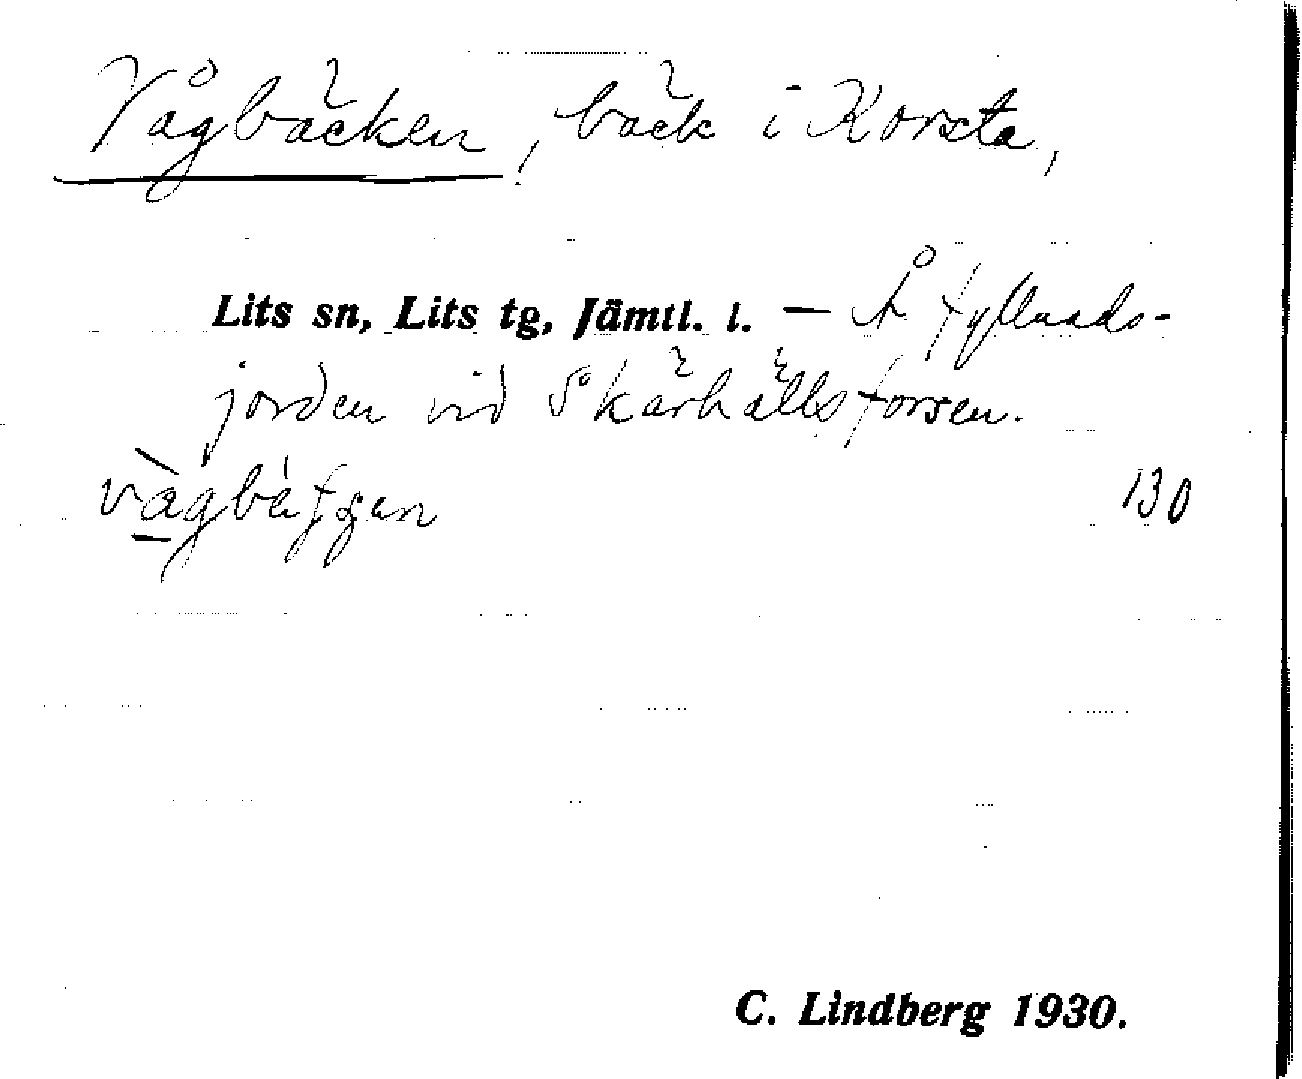 Vågbäcken, bäck i Korsta,
Lits sn, Lits tg, Jämtl. l. — Å fyllnads-
jorden vid Skärhällsforsen.
130
C. Lindberg 1930.